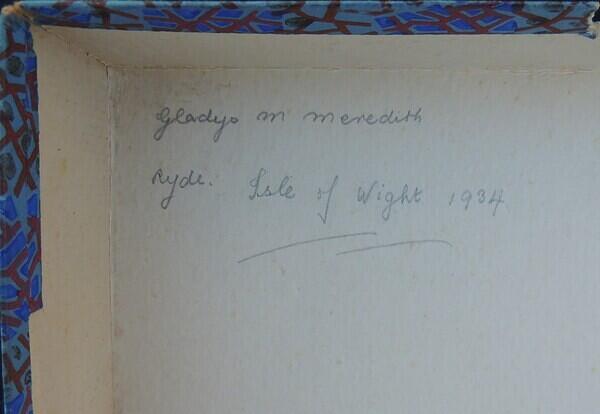 Gladys M Meredith
Ryde. Isle of Wight 1934